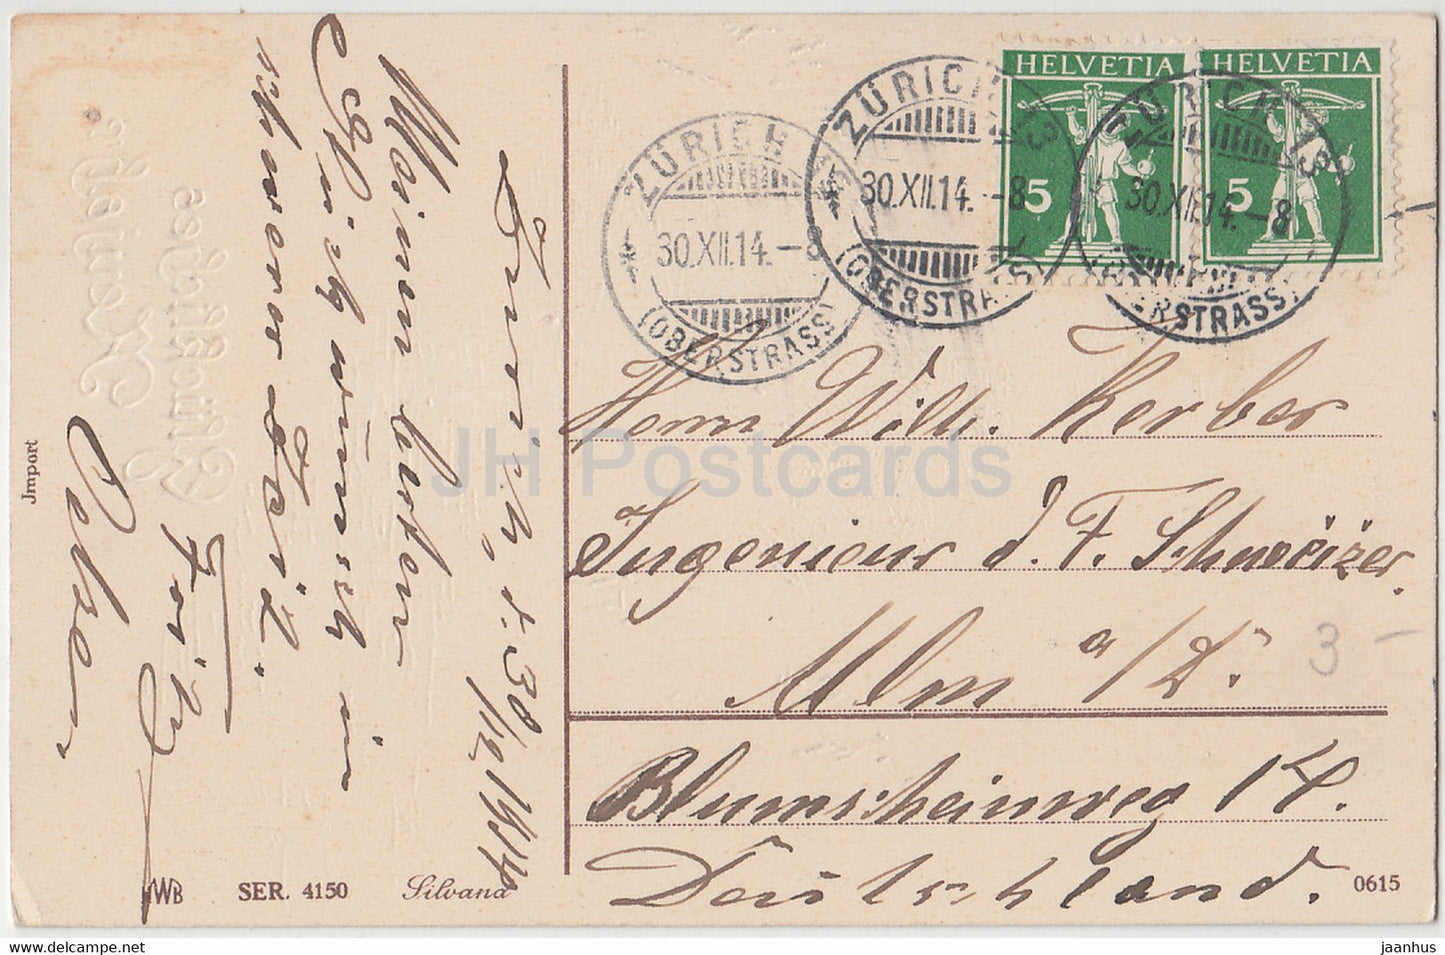 Zürich, d. 30/12 1914
Meinen besten
Glückwunsch in
schwerer Zeit.
Fritz
HELVETIA
HELVETIA
5
5
ZÜRICH 13
30.XII.14.-8
(OBERSTRASS)
ZÜRICH 13
30.XII.14.-8
(OBERSTRASS)
ZÜRICH 13
30.XII.14.-8
(OBERSTRASS)
Herrn Wilh. Kerber
Ingenieur d. F. Schweizer.
Ulm a/D.
Blumscheinweg 14.
Deutschland.
3 -
Jmport
WB
SER. 4150
Silvana
0615
JH Postcards
jaanhus